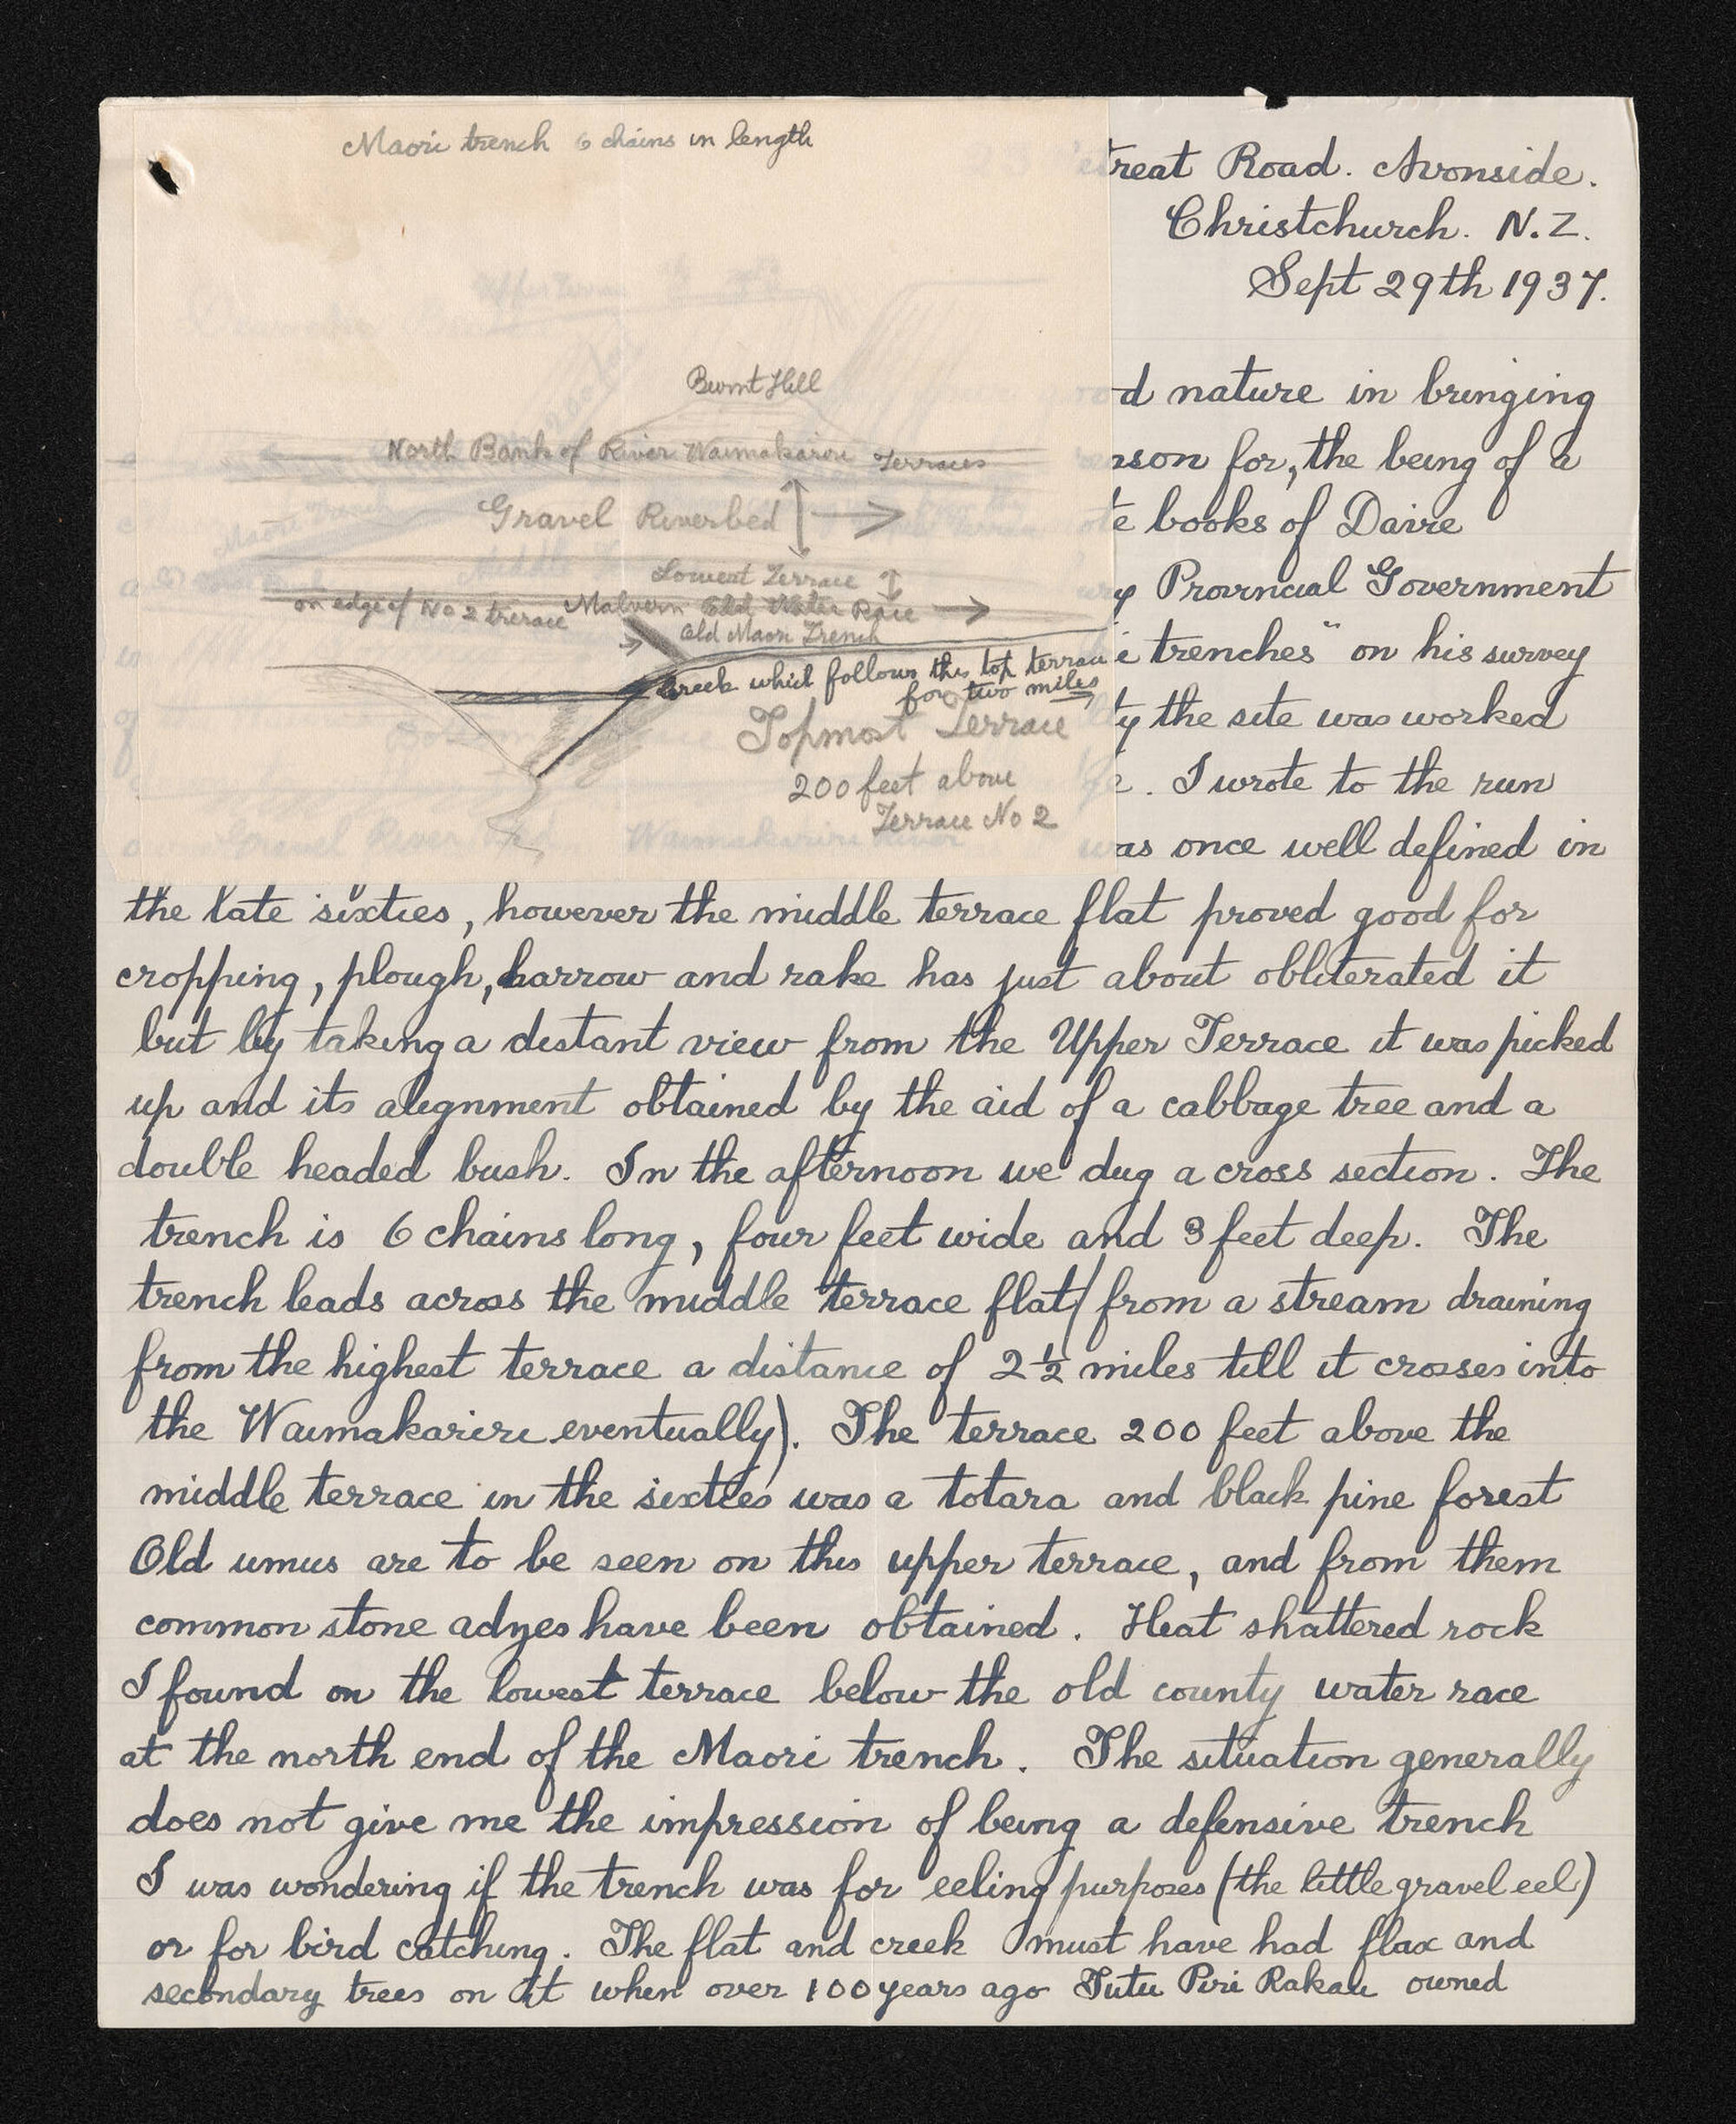 Maori trench 6 chains in length
Burnt Hill
North Bank of River Waimakariri Terraces
Gravel Riverbed
Lowest Terrace
on edge of No 2 trerace Malvern Old Water Race
Old Maori Trench
Creek which follows this top terrace
for two miles
Topmost Terrace
200 feet above
Terrace No 2
treat Road. Avonside.
Christchurch. N.Z.
Sept 29th 1937.
d nature in bringing
ason for, the being of a
te books of Daire
y Provincial Government
i trenches" on his survey
ty the site was worked
e. I wrote to the run
was once well defined in
the late sixties, however the middle terrace flat proved good for
cropping, plough, harrow and rake has just about obliterated it
but by taking a distant view from the Upper Terrace it was picked
up and its alegnment obtained by the aid of a cabbage tree and a
double headed bush. In the afternoon we dug a cross section. The
trench is 6 chains long, four feet wide and 3 feet deep. The
trench leads across the middle terrace flat (from a stream draining
from the highest terrace a distance of 2½ miles till it crosses into
the Waimakariri eventually). The terrace 200 feet above the
middle terrace in the sixties was a totara and black pine forest
Old umus are to be seen on this upper terrace, and from them
common stone adzes have been obtained. Heat shattered rock
I found on the lowest terrace below the old county water race
at the north end of the Maori trench. The situation generally
does not give me the impression of being a defensive trench
I was wondering if the trench was for eeling purposes (the little gravel eel)
or for bird catching. The flat and creek must have had flax and
secondary trees on it when over 100 years ago Tutu Piri Rakau owned